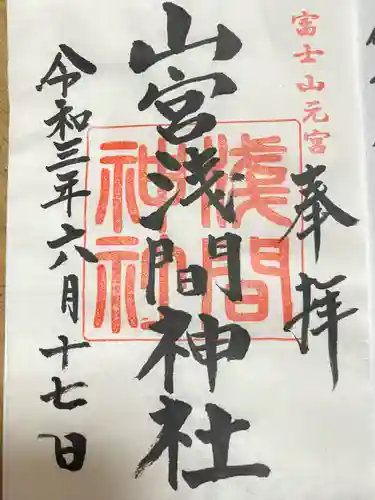 富士山元宮
奉拝
山宮浅間神社
浅間
神社
令和三年六月十七日